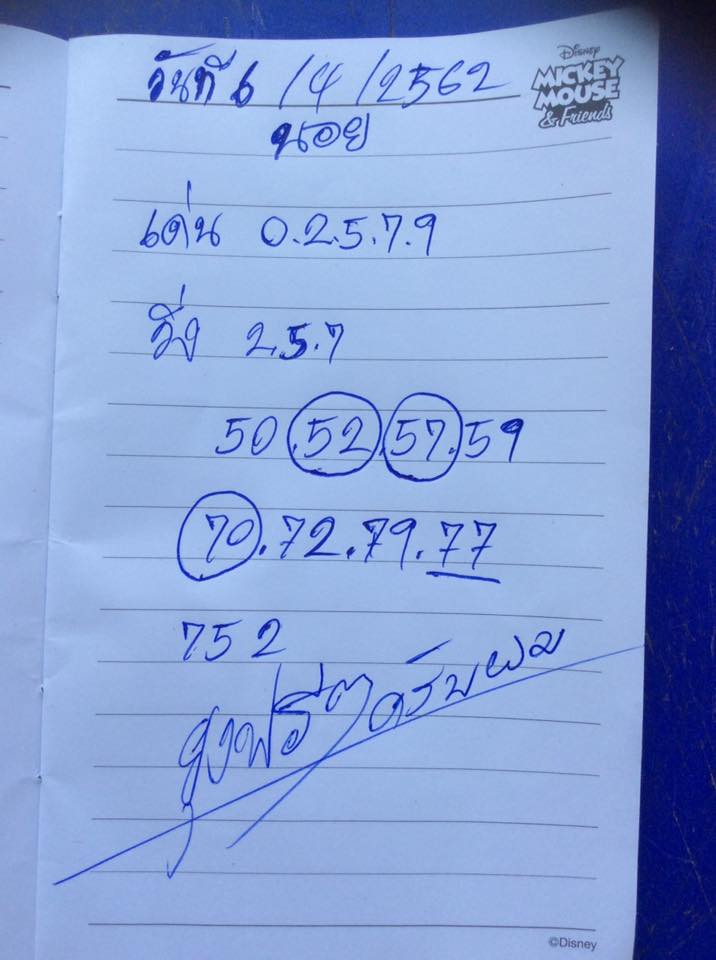 วันที่ 6/4/2562
Disney
MICKEY
MOUSE
& Friends
นอย
เด่น 0.2.5.7.9
วิ่ง 2.5.7
50.52.57.59
70.72.79.77
752
ฟรีๆครับผม
©Disney